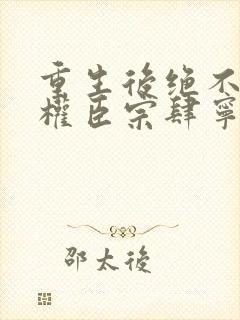 重生後绝不
權臣宗肆寧
邵太後